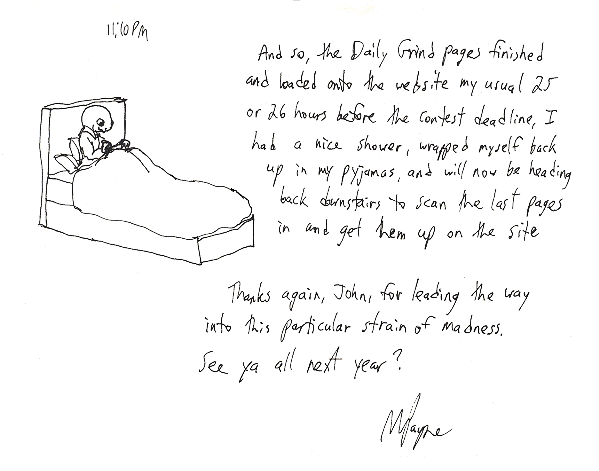 11:10 PM
And so, the Daily Grind pages finished
and loaded onto the website my usual 25
or 26 hours before the contest deadline, I
had a nice shower, wrapped myself back
up in my pyjamas, and will now be heading
back downstairs to scan the last pages
in and get them up on the site
Thanks again, John, for leading the way
into this particular strain of madness.
See ya all next year?